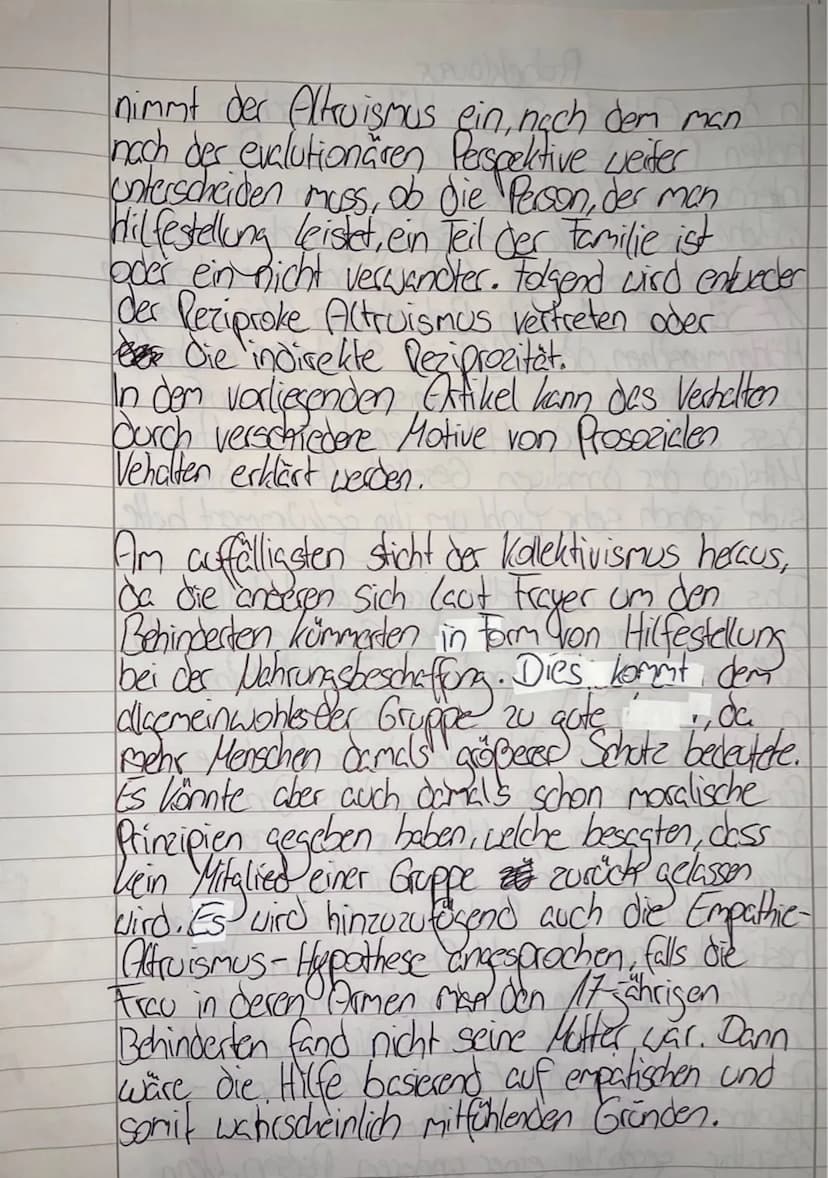 nimmt der Altruismus ein, nach dem man
nach der evalutionären Perspektive weiter
unterscheiden muss, ob die Person, der man
Hilfestellung leistet, ein Teil der Familie ist
oder ein nicht verwandter. Folgend wird entweder
der Reziproke Altruismus vertreten oder
die indirekte Reziprozität.
In dem vorliegenden Artikel kann das Verhalten
durch verschiedere Motive von Prosozialen
Vehalten erklärt werden.
Am auffälligsten sticht der Kollektivismus heraus,
da die anderen sich laut Frayer um den
Behinderten kümmerten in Form von Hilfestellung
bei der Nahrungsbeschaffung. Dies kommt dem
allgemeinwohles der Gruppe zu gute, da
mehr Menschen damals größerer Schutz bedeutete.
Es könnte aber auch damals schon moralische
Prinzipien gegeben haben, welche besagten, dass
kein Mitglied einer Gruppe zurück gelassen
wird. Es wird hinzuzufügend auch die Empathie-
Altruismus-Hypothese angesprochen, falls die
Frau in deren Armen man den 17-jährigen
Behinderten fand nicht seine Mutter war. Dann
wäre die Hilfe basierend auf empatischen und
somit wahrscheinlich mitfühlenden Gründen.